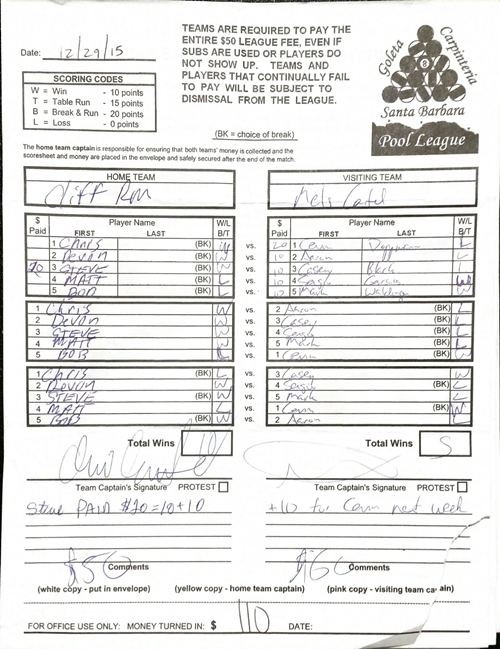 TEAMS ARE REQUIRED TO PAY THE
ENTIRE $50 LEAGUE FEE, EVEN IF
SUBS ARE USED OR PLAYERS DO
NOT SHOW UP. TEAMS AND
PLAYERS THAT CONTINUALLY FAIL
TO PAY WILL BE SUBJECT TO
DISMISSAL FROM THE LEAGUE.
(BK = choice of break)
Goleta Carpinteria
8
Santa Barbara
Pool League
Date: 12/29/15
SCORING CODES
W = Win - 10 points
T = Table Run - 15 points
B = Break & Run - 20 points
L = Loss - 0 points
The home team captain is responsible for ensuring that both teams' money is collected and the
scoresheet and money are placed in the envelope and safely secured after the end of the match.
HOME TEAM VISITING TEAM
Cliff
$ Paid Player Name FIRST LAST W/L B/T $ Paid Player Name FIRST LAST W/L B/T
1 Chris (BK) W vs. 20 1 L
2 Devon (BK) W vs. 10 2 Aaron L
20 3 STEVE (BK) W vs. 10 3 Casey Black
4 MATT (BK) L vs. 10 4 Sergio Garcia
5 BOB (BK) L vs. 10 5 Mark
1 Chris W vs. 2 Aaron (BK) L
2 Devon W vs. 3 Casey (BK) L
3 STEVE W vs. 4 Sergio (BK) L
4 MATT W vs. 5 Mark (BK) L
5 BOB L vs. 1 (BK) W
1 Chris (BK) L vs. 3 Casey W
2 Devon (BK) W vs. 4 Sergio L
3 STEVE (BK) W vs. 5 Mark L
4 MATT L vs. 1 (BK) W
5 BOB (BK) W vs. 2 Aaron L
Total Wins Total Wins 5
Team Captain's Signature PROTEST Team Captain's Signature PROTEST
Steve PAID $20=10+10 +10 for next week
$50 Comments $60 Comments
(white copy - put in envelope) (yellow copy - home team captain) (pink copy - visiting team captain)
FOR OFFICE USE ONLY: MONEY TURNED IN: $ 110 DATE: